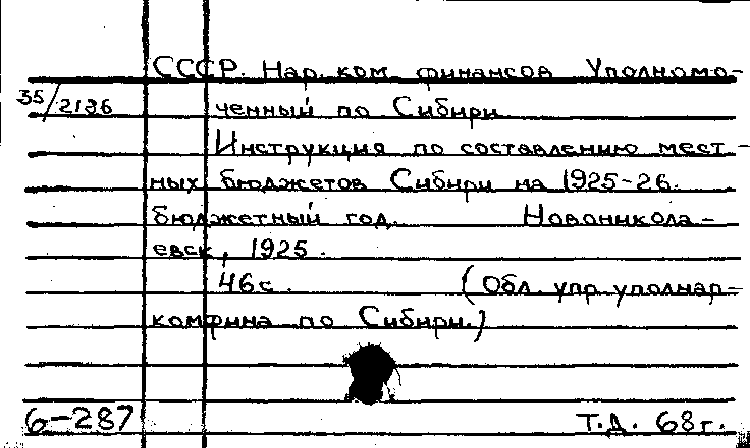 СССР. Нар. ком финансов Уполномо-
35/2136 ченный по Сибири
Инструкция по составлению мест-
ных бюджетов Сибири на 1925-26.
бюджетный год. Новоникола-
евск, 1925.
46с. (Обл. упр. уполнар-
комфина по Сибири.)
6-287 Т.Д. 68г.